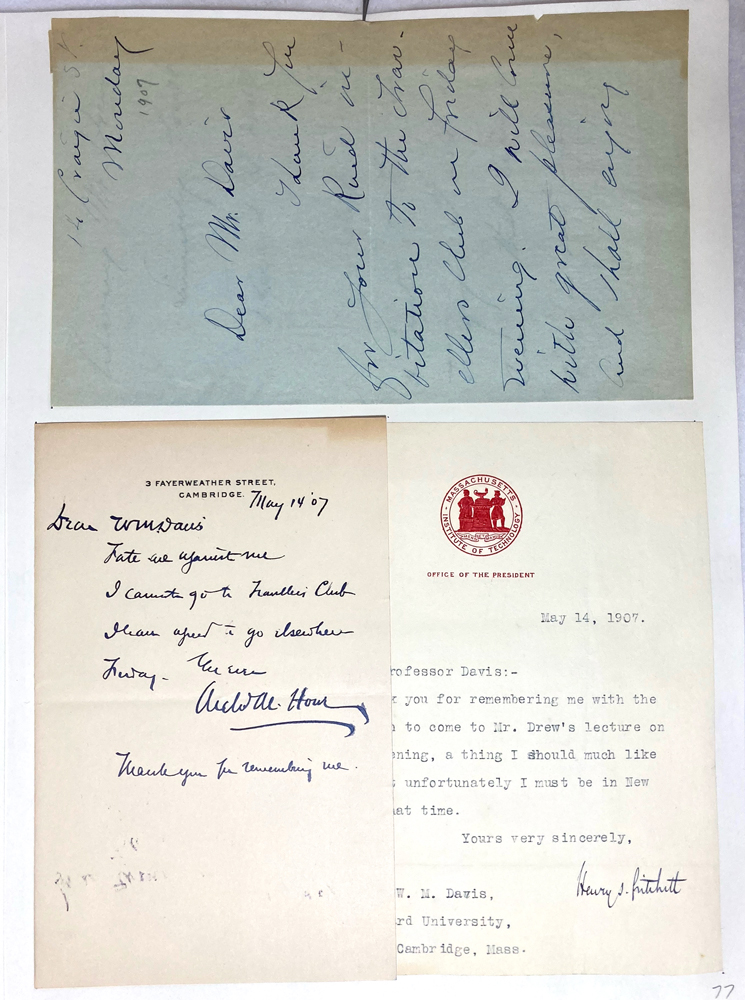 14 Craigie St.
Monday
1907
Dear Mr. Davis
Thank you
for your kind in-
vitation to the Trav-
ellers Club on Friday
evening. I will come
with great pleasure,
and shall enjoy
3 FAYERWEATHER STREET,
CAMBRIDGE.
May 14 '07
Dear WMDavis
Fate are against me
I cannot go to Travellers Club
I have agreed to go elsewhere
Friday.
Thank you for remembering me.
MASSACHUSETTS
INSTITUTE OF TECHNOLOGY
OFFICE OF THE PRESIDENT
May 14, 1907.
rofessor Davis:-
k you for remembering me with the
to come to Mr. Drew's lecture on
ning, a thing I should much like
unfortunately I must be in New
at time.
Yours very sincerely,
Henry S. Pritchett
W. M. Davis,
rd University,
Cambridge, Mass.
77